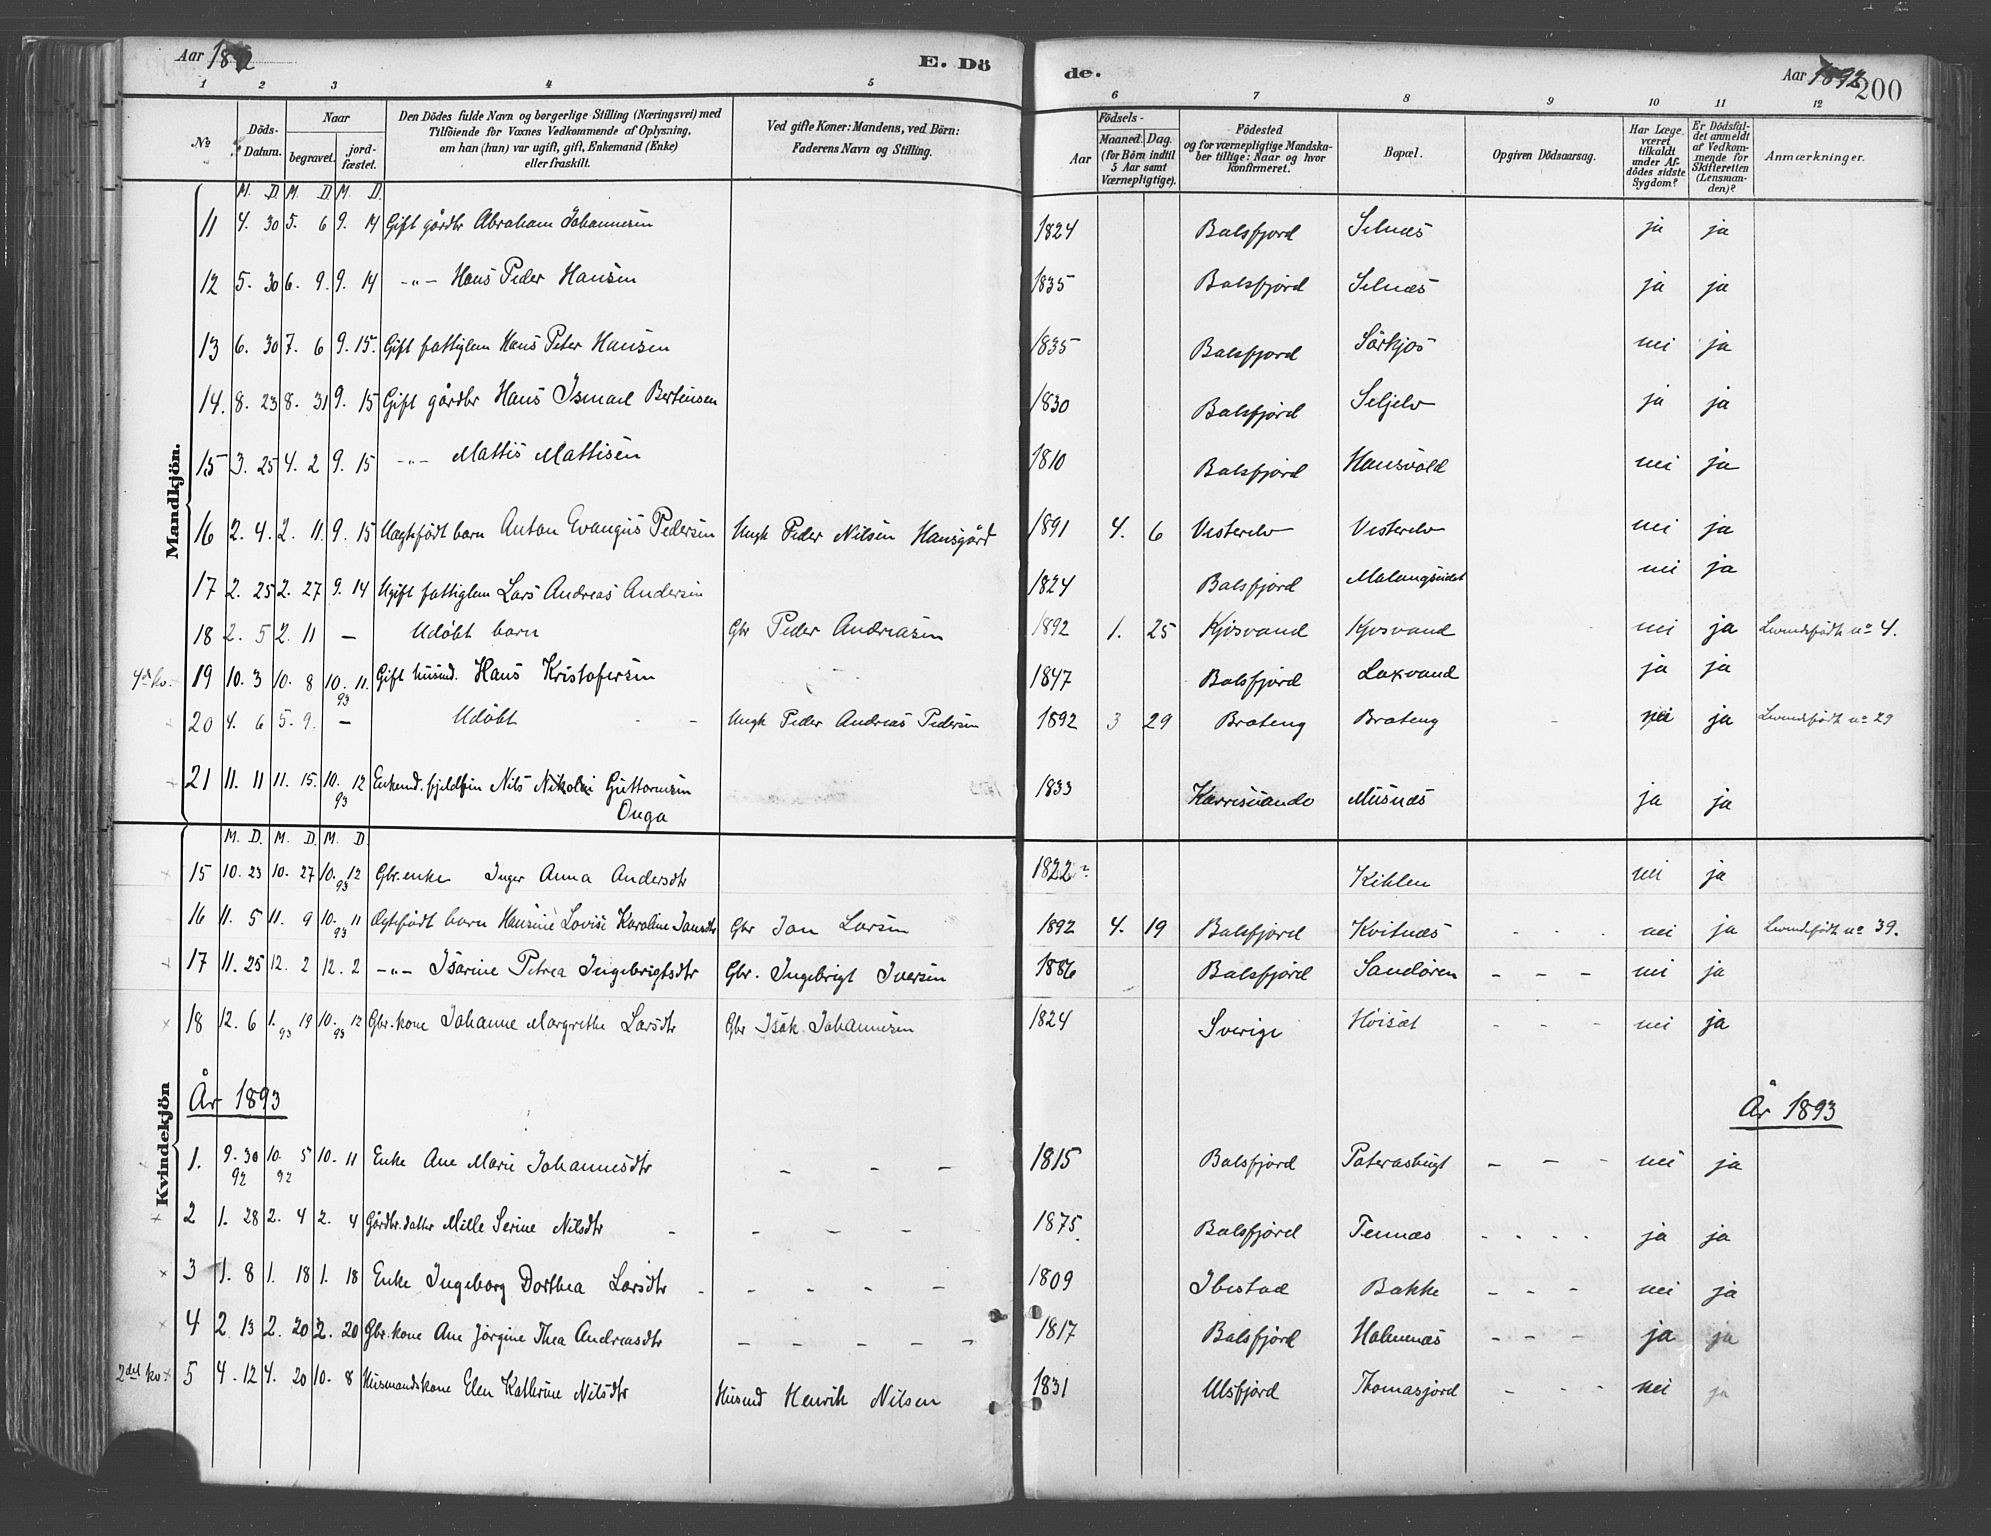 Aar 1892 E. Dö de. Aar 1892 200
1 2 3 4 5 6 7 8 9 10 11 12
No Döds-Datum. Naar begravet. jordfæstet. Den Dödes fulde Navn og borgerlige Stilling (Næringsvei) med Tilföiende for Voxnes Vedkommende af Oplysning, om han (hun) var ugift, gift, Enkemand (Enke) eller fraskilt. Ved gifte Koner: Mandens, ved Börn: Faderens Navn og Stilling. Födsels- Aar Maaned. Dag. (for Börn indtil 5 Aar samt Værnepligtige). Födested og for værnepligtige Mandskaber tillige: Naar og hvor Konfirmeret. Bopæl. Opgiven Dödsaarsag. Har Læge været tilkaldt under Afdödes sidste Sygdom? Er Dödsfaldet anmeldt af Vedkommende for Skifteretten (Lensmanden)? Anmærkninger.
Mandkjön.
M. D. M. D. M. D.
11 4. 30 5. 6 9. 14 Gift gårdbr Abraham Johannesen 1824 Balsfjord Selnæs ja ja
12 5. 30 6. 9. 9. 14 -"- Hans Peder Hansen 1835 Balsfjord Selnæs ja ja
13 6. 30 7. 6 9. 15. Gift fattiglem Hans Peter Hansen 1835 Balsfjord Sörkjos nei ja
14. 8. 23 8. 31 9. 15 Gift gårdbr Hans Ismael Bertensen 1830 Balsfjord Seljelv ja ja
15 3. 25 4. 2 9. 15 -"- Mattis Mattisen 1810 Balsfjord Hansvold nei ja
16 2. 4. 2. 11 9. 15 Uægtefødt barn Anton Evangus Pedersen Ungk Peder Nilsen Hansgård 1891 4. 6 Vesterelv Vesterelv nei ja
17 2. 25 2. 27 9. 14 Ugift fattiglem Lars Andreas Andersen 1824 Balsfjord Malangseidet nei ja
18 2. 5 2. 11 — Udøbt barn Gbr Peder Andreasen 1892 1. 25 Kjosvand Kjosvand nei ja Levendefødt no 4.
4de kv. 19 10. 3 10. 8 10. 11. 93 Gift husmd. Hans Kristofersen 1847 Balsfjord Laxvand ja ja
20 4. 6 5. 9. — Udøbt - - Ungk Peder Andreas Pedersen 1892 3 29 Brateng Brateng - nei ja Levendefødt no 29
21 11. 11 11. 15. 10. 12 93 Enkemd. fjeldfin Nils Nikolai Guttormsen Onga 1833 Karresuando Miisnæs ja ja
Kvindekjön
M. D. M. D. M. D.
15 10. 23 10. 27 10. 12 93 Gbr.enke Inger Anna Andersdtr 1822 ? Kihlen nei ja
16 11. 5 11. 9 10. 11 93 Ægtefødt barn Hansine Lovise Karoline Jansdtr Gbr Jan Larsen 1892 4. 19 Balsfjord Kvitnæs - - - nei ja Levendefødt no 39.
17 11. 25 12. 2 12. 2 -"- Isarine Petrea Ingebrigtsdtr Gbr. Ingebrigt Iversen 1886 Balsfjord Sandøren - - - nei ja
18 12. 6 1. 19 93 10. 12 93 Gbr.kone Johanne Margrethe Larsdtr Gbr Isak Johannesen 1824 Sverige Höisæt - - - nei ja
År 1893 År 1893
1. 9. 30 92 10. 5 92 10. 11 Enke Ane Marie Johannesdtr - - - 1815 Balsfjord Paterasbugt - - - nei ja
2 1. 28 2. 4 2. 4 Gårdbr.datter Mille Serine Nilsdtr - - - - - 1875. Balsfjord Tennæs - - - - ja ja
3 1. 8 1. 18 1. 18 Enke Ingeborg Dorthea Larsdtr - - - - - 1809 Ibestad Bakke - - - nei ja
4 2 13 2. 20 2. 20 Gbr.kone Ane Jörgine Thea Andreasdtr - - - - - 1817 Balsfjord Holmenæs - - - ja ja
2det kv. 5 4. 12 4. 20 10. 8 Husmandskone Elen Kathrine Nilsdtr Husmd Henrik Nilsen 1831 Ulsfjord Thomasjord - - - nei ja